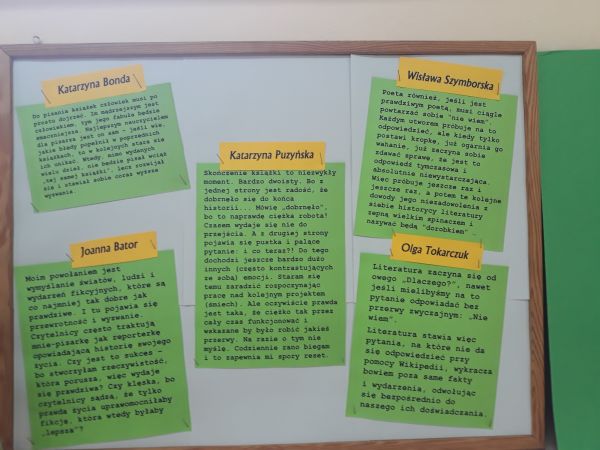 Katarzyna Bonda
Do pisania książek człowiek musi po
prostu dojrzeć. Im mądrzejszym jest
człowiekiem, tym jego fabuła będzie
smaczniejsza. Najlepszym nauczycielem
dla pisarza jest on sam – jeśli wie,
jakie błędy popełnił w poprzednich
książkach, to w kolejnych stara się
ich unikać. Wtedy, mimo wydanych
wielu dzieł, nie będzie pisał wciąż
„tej samej książki", lecz rozwijał
się i stawiał sobie coraz wyższe
wyzwania.
Joanna Bator
Moim powołaniem jest
wymyślanie światów, ludzi i
wydarzeń fikcyjnych, które są
co najmniej tak dobre jak
prawdziwe. I tu pojawia się
przewrotność i wyzwanie.
Czytelnicy często traktują
mnie-pisarkę jak reporterkę
opowiadającą historię swojego
życia. Czy jest to sukces –
bo stworzyłam rzeczywistość,
która porusza, więc wydaje
się prawdziwa? Czy klęska, bo
czytelnicy sądzą, że tylko
prawda życia uprawomocniłaby
fikcję, która wtedy byłaby
„lepsza"?
Katarzyna Puzyńska
Skończenie książki to niezwykły
moment. Bardzo dwoisty. Bo z
jednej strony jest radość, że
dobrnęło się do końca
historii... Mówię „dobrnęło",
bo to naprawdę ciężka robota!
Czasem wydaje się nie do
przejścia. A z drugiej strony
pojawia się pustka i palące
pytanie: i co teraz?! Do tego
dochodzi jeszcze bardzo dużo
innych (często kontrastujących
ze sobą) emocji. Staram się
temu zaradzić rozpoczynając
pracę nad kolejnym projektem
(śmiech). Ale oczywiście prawda
jest taka, że ciężko tak przez
cały czas funkcjonować i
wskazane by było robić jakieś
przerwy. Na razie o tym nie
myślę. Codziennie rano biegam
i to zapewnia mi spory reset.
Wisława Szymborska
Poeta również, jeśli jest
prawdziwym poetą, musi ciągle
powtarzać sobie "nie wiem".
Każdym utworem próbuje na to
odpowiedzieć, ale kiedy tylko
postawi kropkę, już ogarnia go
wahanie, już zaczyna sobie
zdawać sprawę, że jest to
odpowiedź tymczasowa i
absolutnie niewystarczająca.
Więc próbuje jeszcze raz i
jeszcze raz, a potem te kolejne
dowody jego niezadowolenia z
siebie historycy literatury
zepną wielkim spinaczem i
nazywać będą "dorobkiem"
Olga Tokarczuk
Literatura zaczyna się od
owego „Dlaczego?", nawet
jeśli mielibyśmy na to
pytanie odpowiadać bez
przerwy zwyczajnym: „Nie
wiem".
Literatura stawia więc
pytania, na które nie da
się odpowiedzieć przy
pomocy Wikipedii, wykracza
bowiem poza same fakty
i wydarzenia, odwołując
się bezpośrednio do
naszego ich doświadczania.